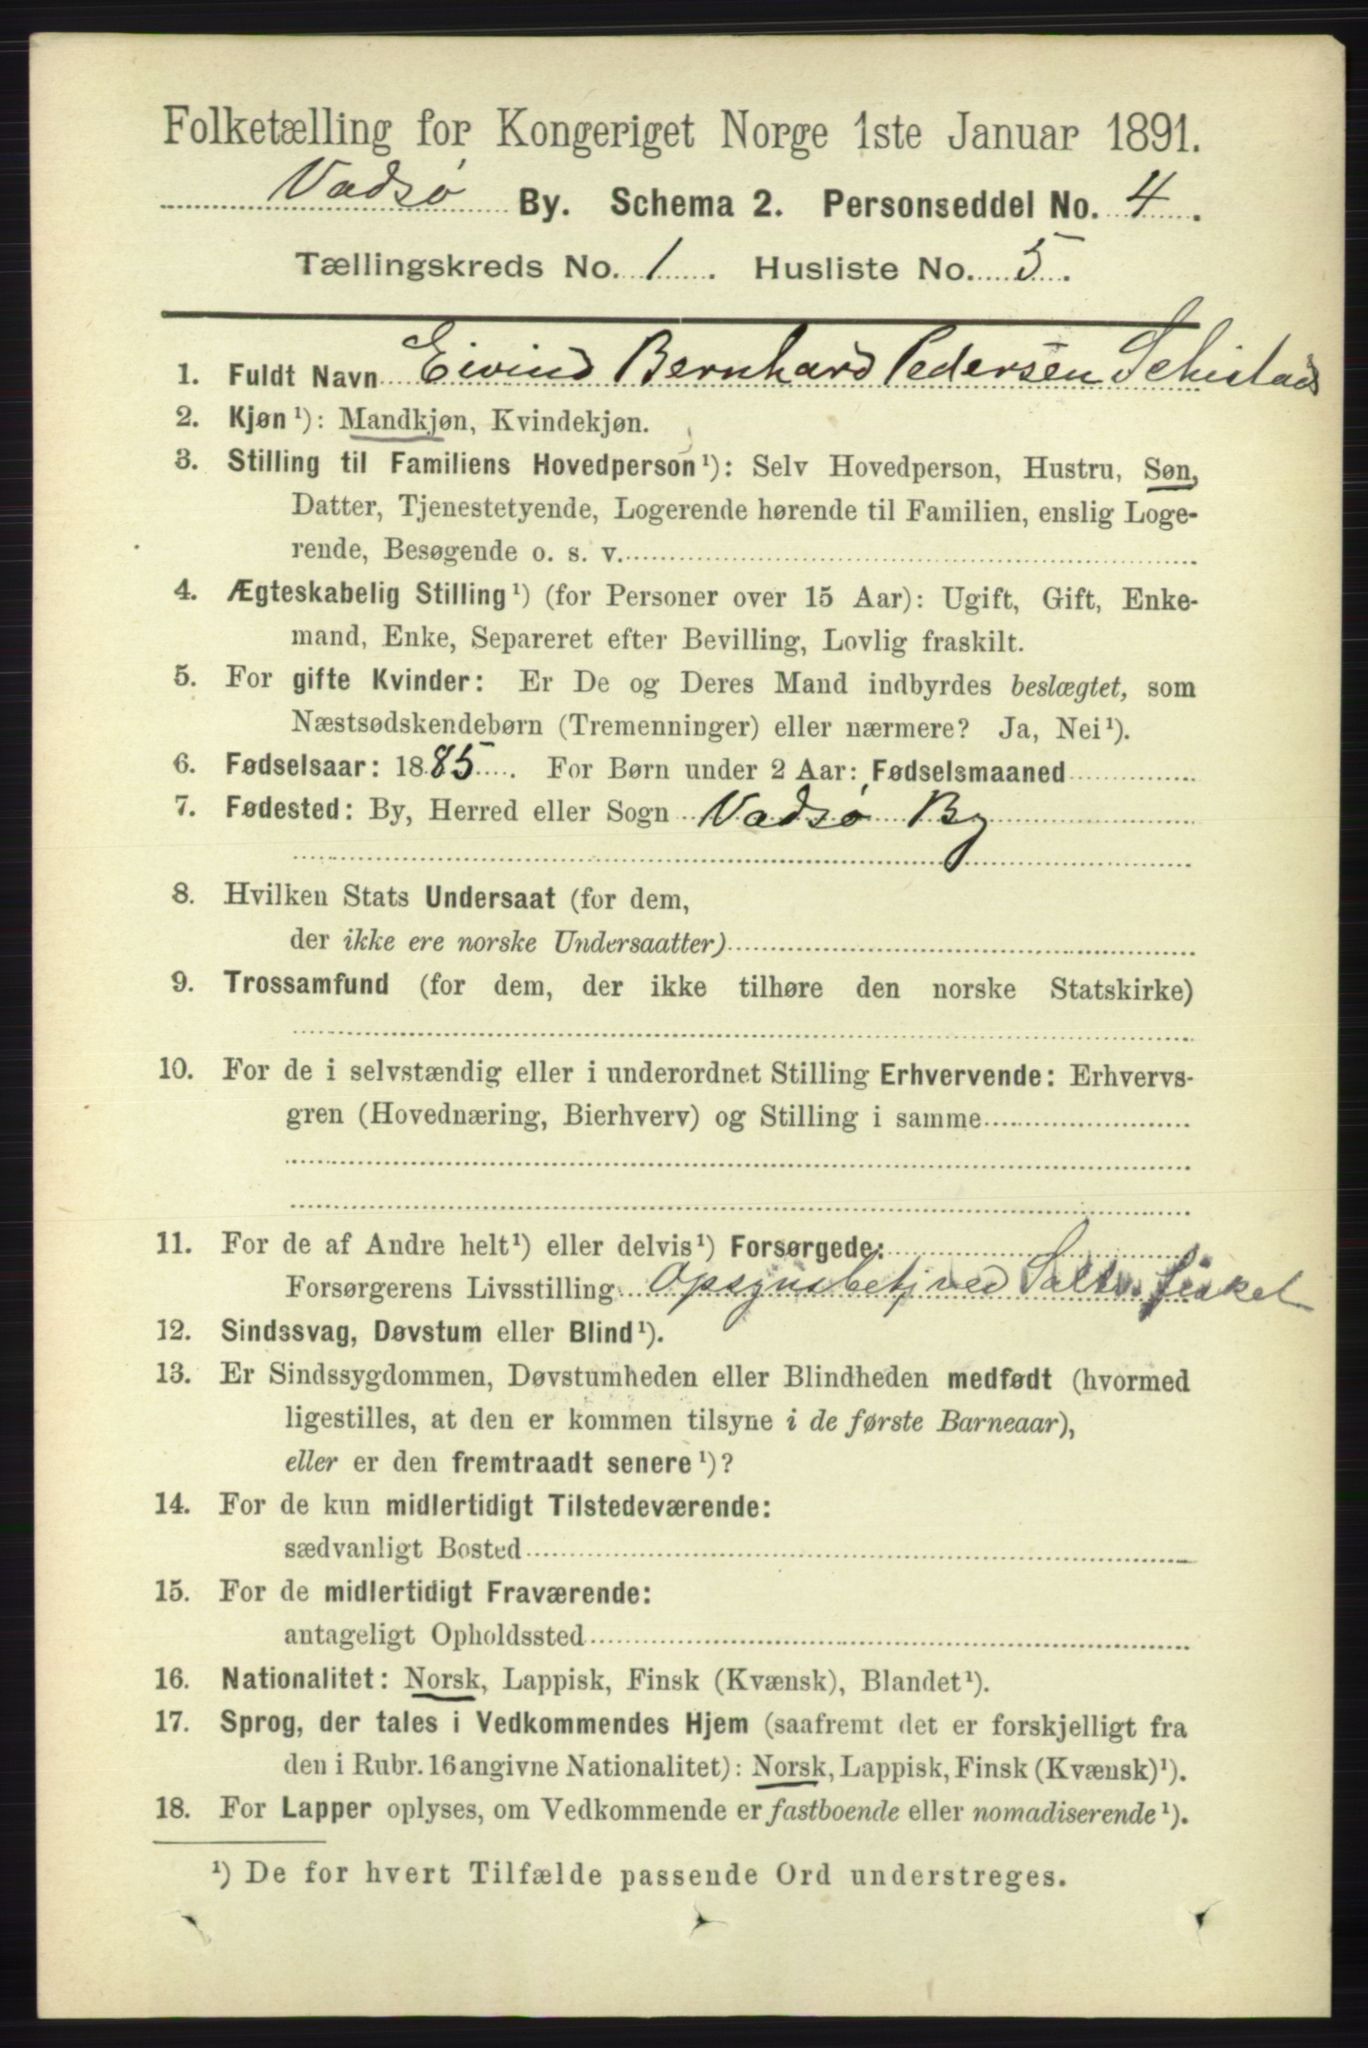 Folketælling for Kongeriget Norge 1ste Januar 1891.
Vadsø By. Schema 2. Personseddel No. 4.
Tællingskreds No. 1. Husliste No. 5.
1. Fuldt Navn Eivind Bernhard Pedersen Schistad
2. Kjøn¹): Mandkjøn, Kvindekjøn.
3. Stilling til Familiens Hovedperson¹): Selv Hovedperson, Hustru, Søn,
Datter, Tjenestetyende, Logerende hørende til Familien, enslig Loge-
rende, Besøgende o. s. v.
4. Ægteskabelig Stilling¹) (for Personer over 15 Aar): Ugift, Gift, Enke-
mand, Enke, Separeret efter Bevilling, Lovlig fraskilt.
5. For gifte Kvinder: Er De og Deres Mand indbyrdes beslægtet, som
Næstsødskendebørn (Tremenninger) eller nærmere? Ja, Nei¹).
6. Fødselsaar: 1885. For Børn under 2 Aar: Fødselsmaaned
7. Fødested: By, Herred eller Sogn Vadsø By
8. Hvilken Stats Undersaat (for dem,
der ikke ere norske Undersaatter)
9. Trossamfund (for dem, der ikke tilhøre den norske Statskirke)
10. For de i selvstændig eller i underordnet Stilling Erhvervende: Erhvervs-
gren (Hovednæring, Bierhverv) og Stilling i samme
11. For de af Andre helt¹) eller delvis¹) Forsørgede:
Forsørgerens Livsstilling Opsynsbetj ved
12. Sindssvag, Døvstum eller Blind¹).
13. Er Sindssygdommen, Døvstumheden eller Blindheden medfødt (hvormed
ligestilles, at den er kommen tilsyne i de første Barneaar),
eller er den fremtraadt senere¹)?
14. For de kun midlertidigt Tilstedeværende:
sædvanligt Bosted
15. For de midlertidigt Fraværende:
antageligt Opholdssted
16. Nationalitet: Norsk, Lappisk, Finsk (Kvænsk), Blandet¹).
17. Sprog, der tales i Vedkommendes Hjem (saafremt det er forskjelligt fra
den i Rubr. 16 angivne Nationalitet): Norsk, Lappisk, Finsk (Kvænsk)¹).
18. For Lapper oplyses, om Vedkommende er fastboende eller nomadiserende¹).
¹) De for hvert Tilfælde passende Ord understreges.